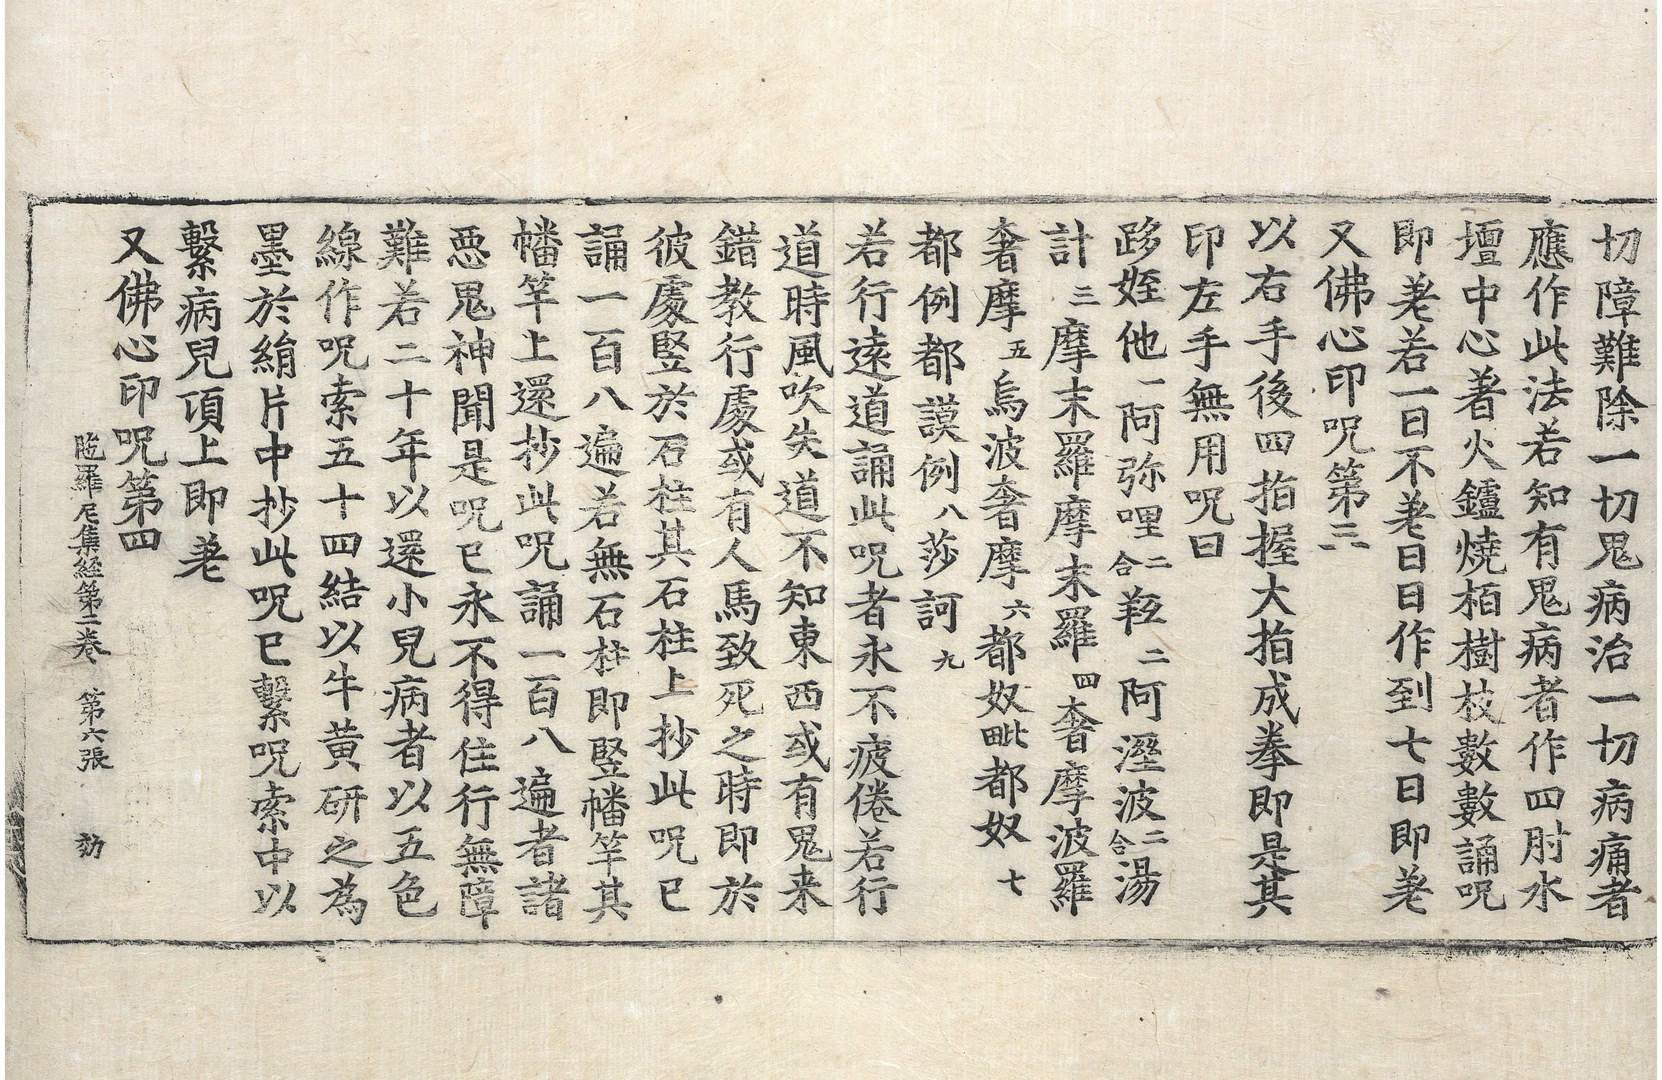 切障難除一切鬼病治一切病痛者
應作此法若知有鬼病者作四肘水
壇中心著火鑪燒栢樹枝數數誦呪
即差若一日不差日日作到七日即差
又佛心印呪第三
以右手後四指握大拍成拳即是其
印左手無用呪曰
跢姪他一阿弥哩二合䩭二阿溼波二合湯
計三摩末羅摩末羅四奢摩波羅
奢摩五烏波奢摩六都奴毗都奴七
都例都謨例八莎訶九
若行遠道誦此呪者永不疲倦若行
道時風吹失道不知東西或有鬼来
錯教行處或有人馬致死之時即於
彼處竪於石柱其石柱上抄此呪已
誦一百八遍若無石柱即竪幡竿其
幡竿上還抄此呪誦一百八遍者諸
惡鬼神聞是呪已永不得住行無障
難若二十年以還小兒病者以五色
線作呪索五十四結以牛黄研之為
墨於絹片中抄此呪已繫呪索中以
繫病兒項上即差
又佛心印呪第四
陁羅尼集經第二卷 第六張